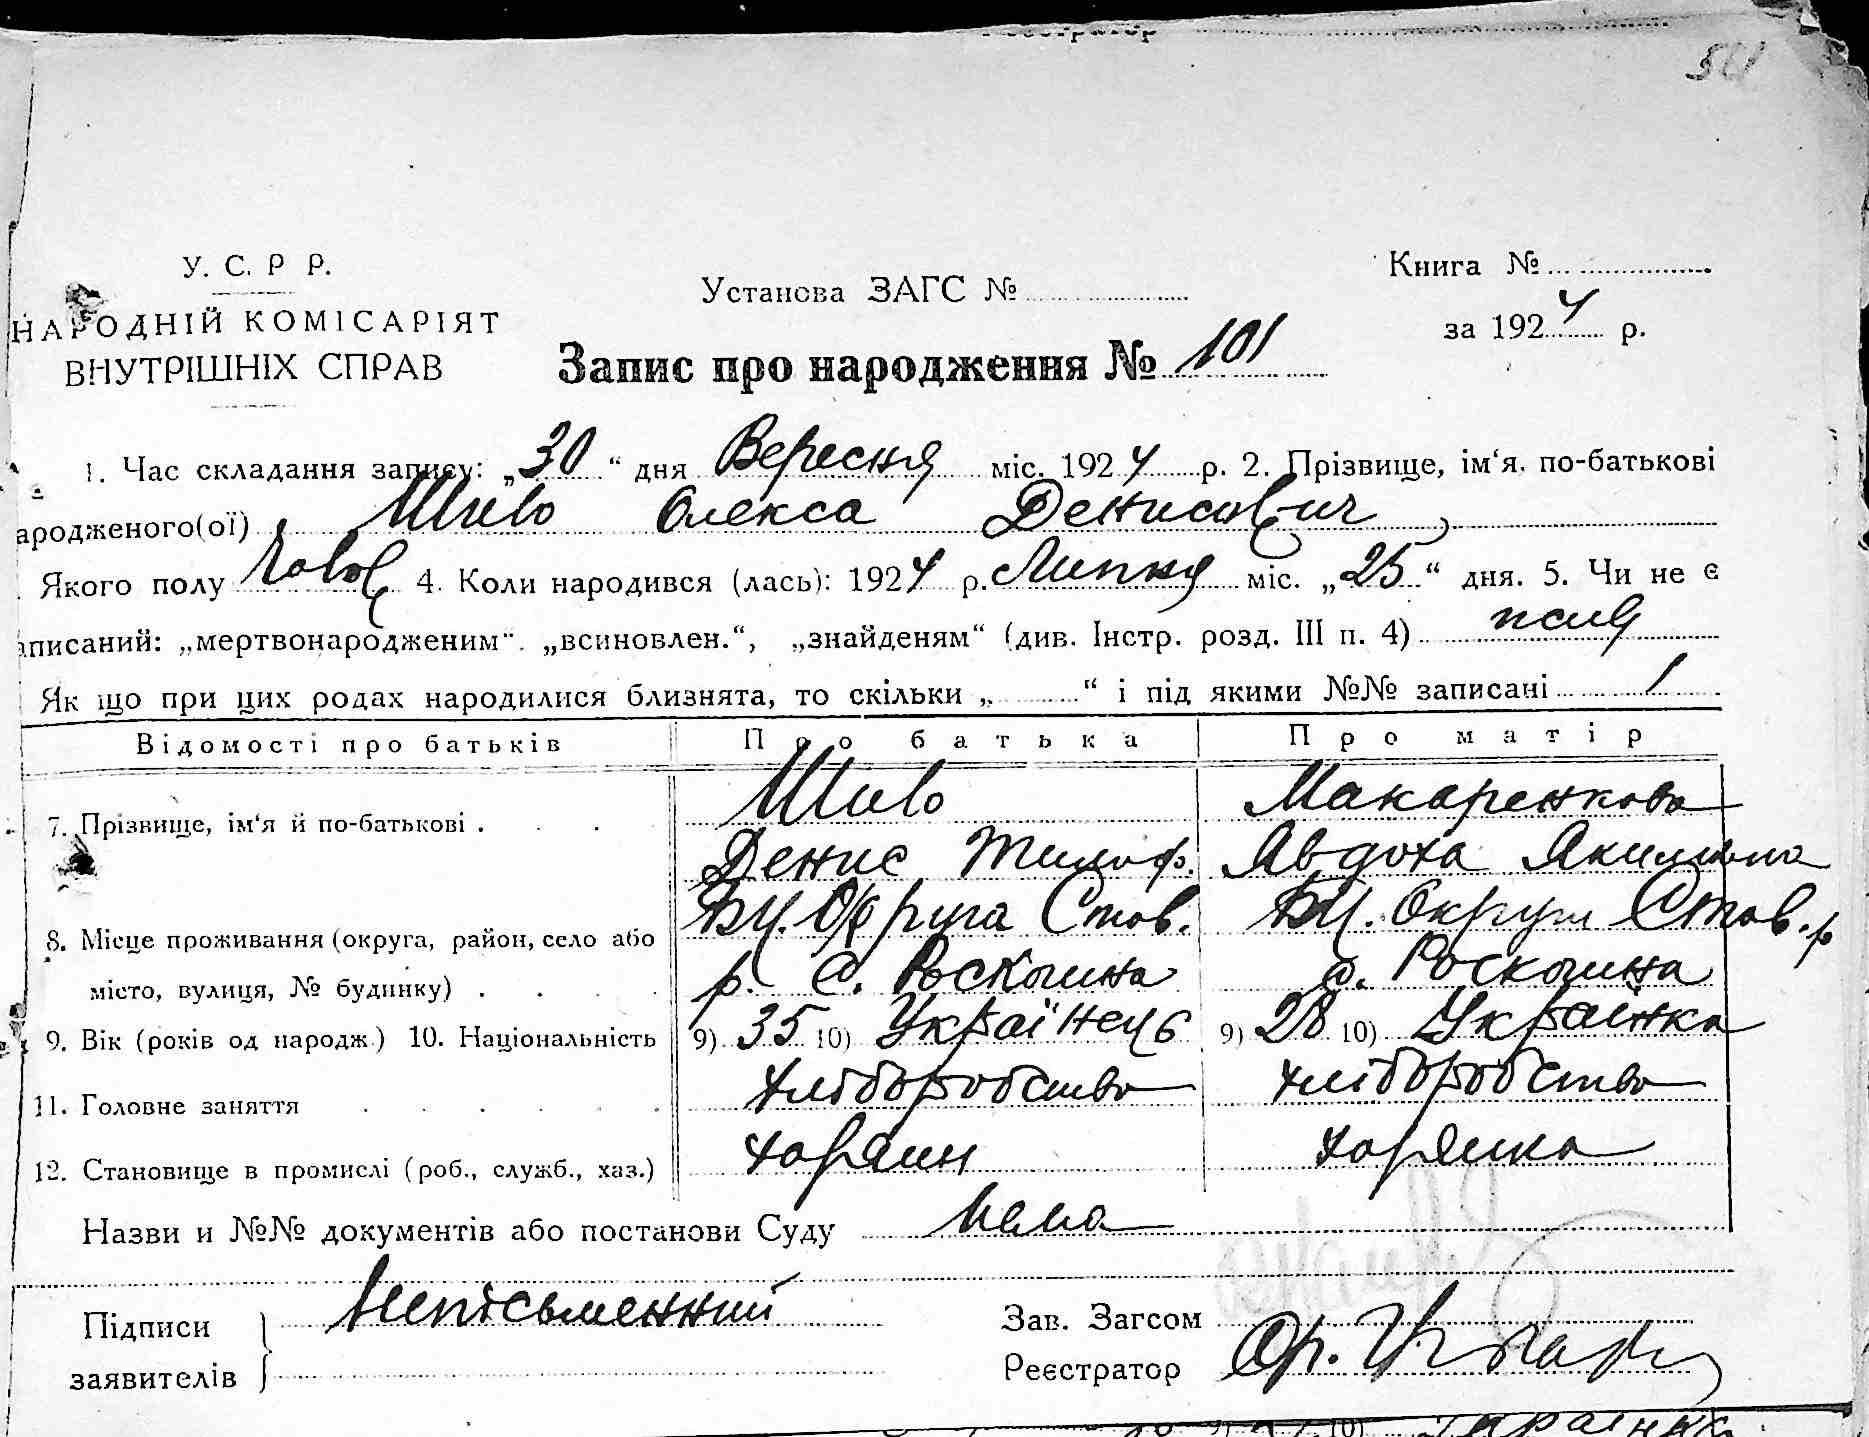 У. С. Р Р.
НАРОДНІЙ КОМІСАРІЯТ
ВНУТРІШНІХ СПРАВ
Установа ЗАГС №
Книга №
за 1924 р.
Запис про народження № 101
1. Час складання запису: „30“ дня Вересня міс. 1924 р. 2. Прізвище, ім‘я, по-батькові
ародженого(ої) Шило Олекса Денисович
Якого полу чолов 4. Коли народився (лась): 1924 р. Липня міс. „25“ дня. 5. Чи не є
писаний: „мертвонародженим“. „всиновлен.“, „знайденям“ (див. Інстр. розд. III п. 4)
Як що при цих родах народилися близнята, то скільки „ “ і під якими №№ записані 1
Відомості про батьків Про батька Про матір
7. Прізвище, ім'я й по-батькові . . . Шило Макаренкова
Денис Тимоф. Явдоха Якимовна
8. Місце проживання (округа, район, село або БЦ. Округа Став. БЦ. Округи Став. р
місто, вулиця, № будинку) . . . . р. С. Роскошна с. Роскошна
9. Вік (років од народж.) 10. Національність 9) 35 10) Українець 9) 28 10) Українка
11. Головне заняття . . . . . . хліборобство хліборобство
12. Становище в промислі (роб., служб., хаз.) хазяин хазяика
Назви и №№ документів або постанови Суду Нема
Підписи Неписьменний Зав. Загсом
заявителів Реєстратор